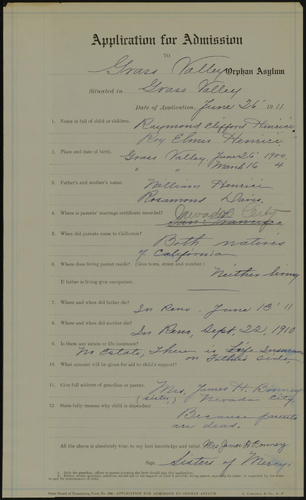 Application for Admission
TO
Grass Valley Orphan Asylum
Situated in Grass Valley
Date of Application, June 26 1911
1. Name in full of child or children.
Raymond Clifford Henrici
Roy Elmer Henrici
2. Place and date of birth.
Grass Valley, June 26 1900
" " March 16 4
3. Father's and mother's name.
William Henrici
Rosamond Davis.
4. Where is parents' marriage certificate recorded?
Nevada City
San Francisco
5. When did parents come to California?
Both natives
of California
6. Where does living parent reside? (Give town, street and number)
Neither living
If father is living give occupation.
7. Where and when did father die?
In Reno. June 13 '11
8. Where and when did mother die?
In Reno, Sept. 22, 1910
9. Is there any estate or life insurance?
No Estate, There is Life Insurance
on Father's side.
10. What amount will be given for aid to child's support?
11. Give full address of guardian or parent.
Mrs. James H. Bonney
(Sister) Nevada City.
12. State fully reason why child is dependent?
Because parents
are dead.
All the above is absolutely true, to my best knowledge and belief. Mrs James H. Bonney
Sign, Sisters of Mercy.